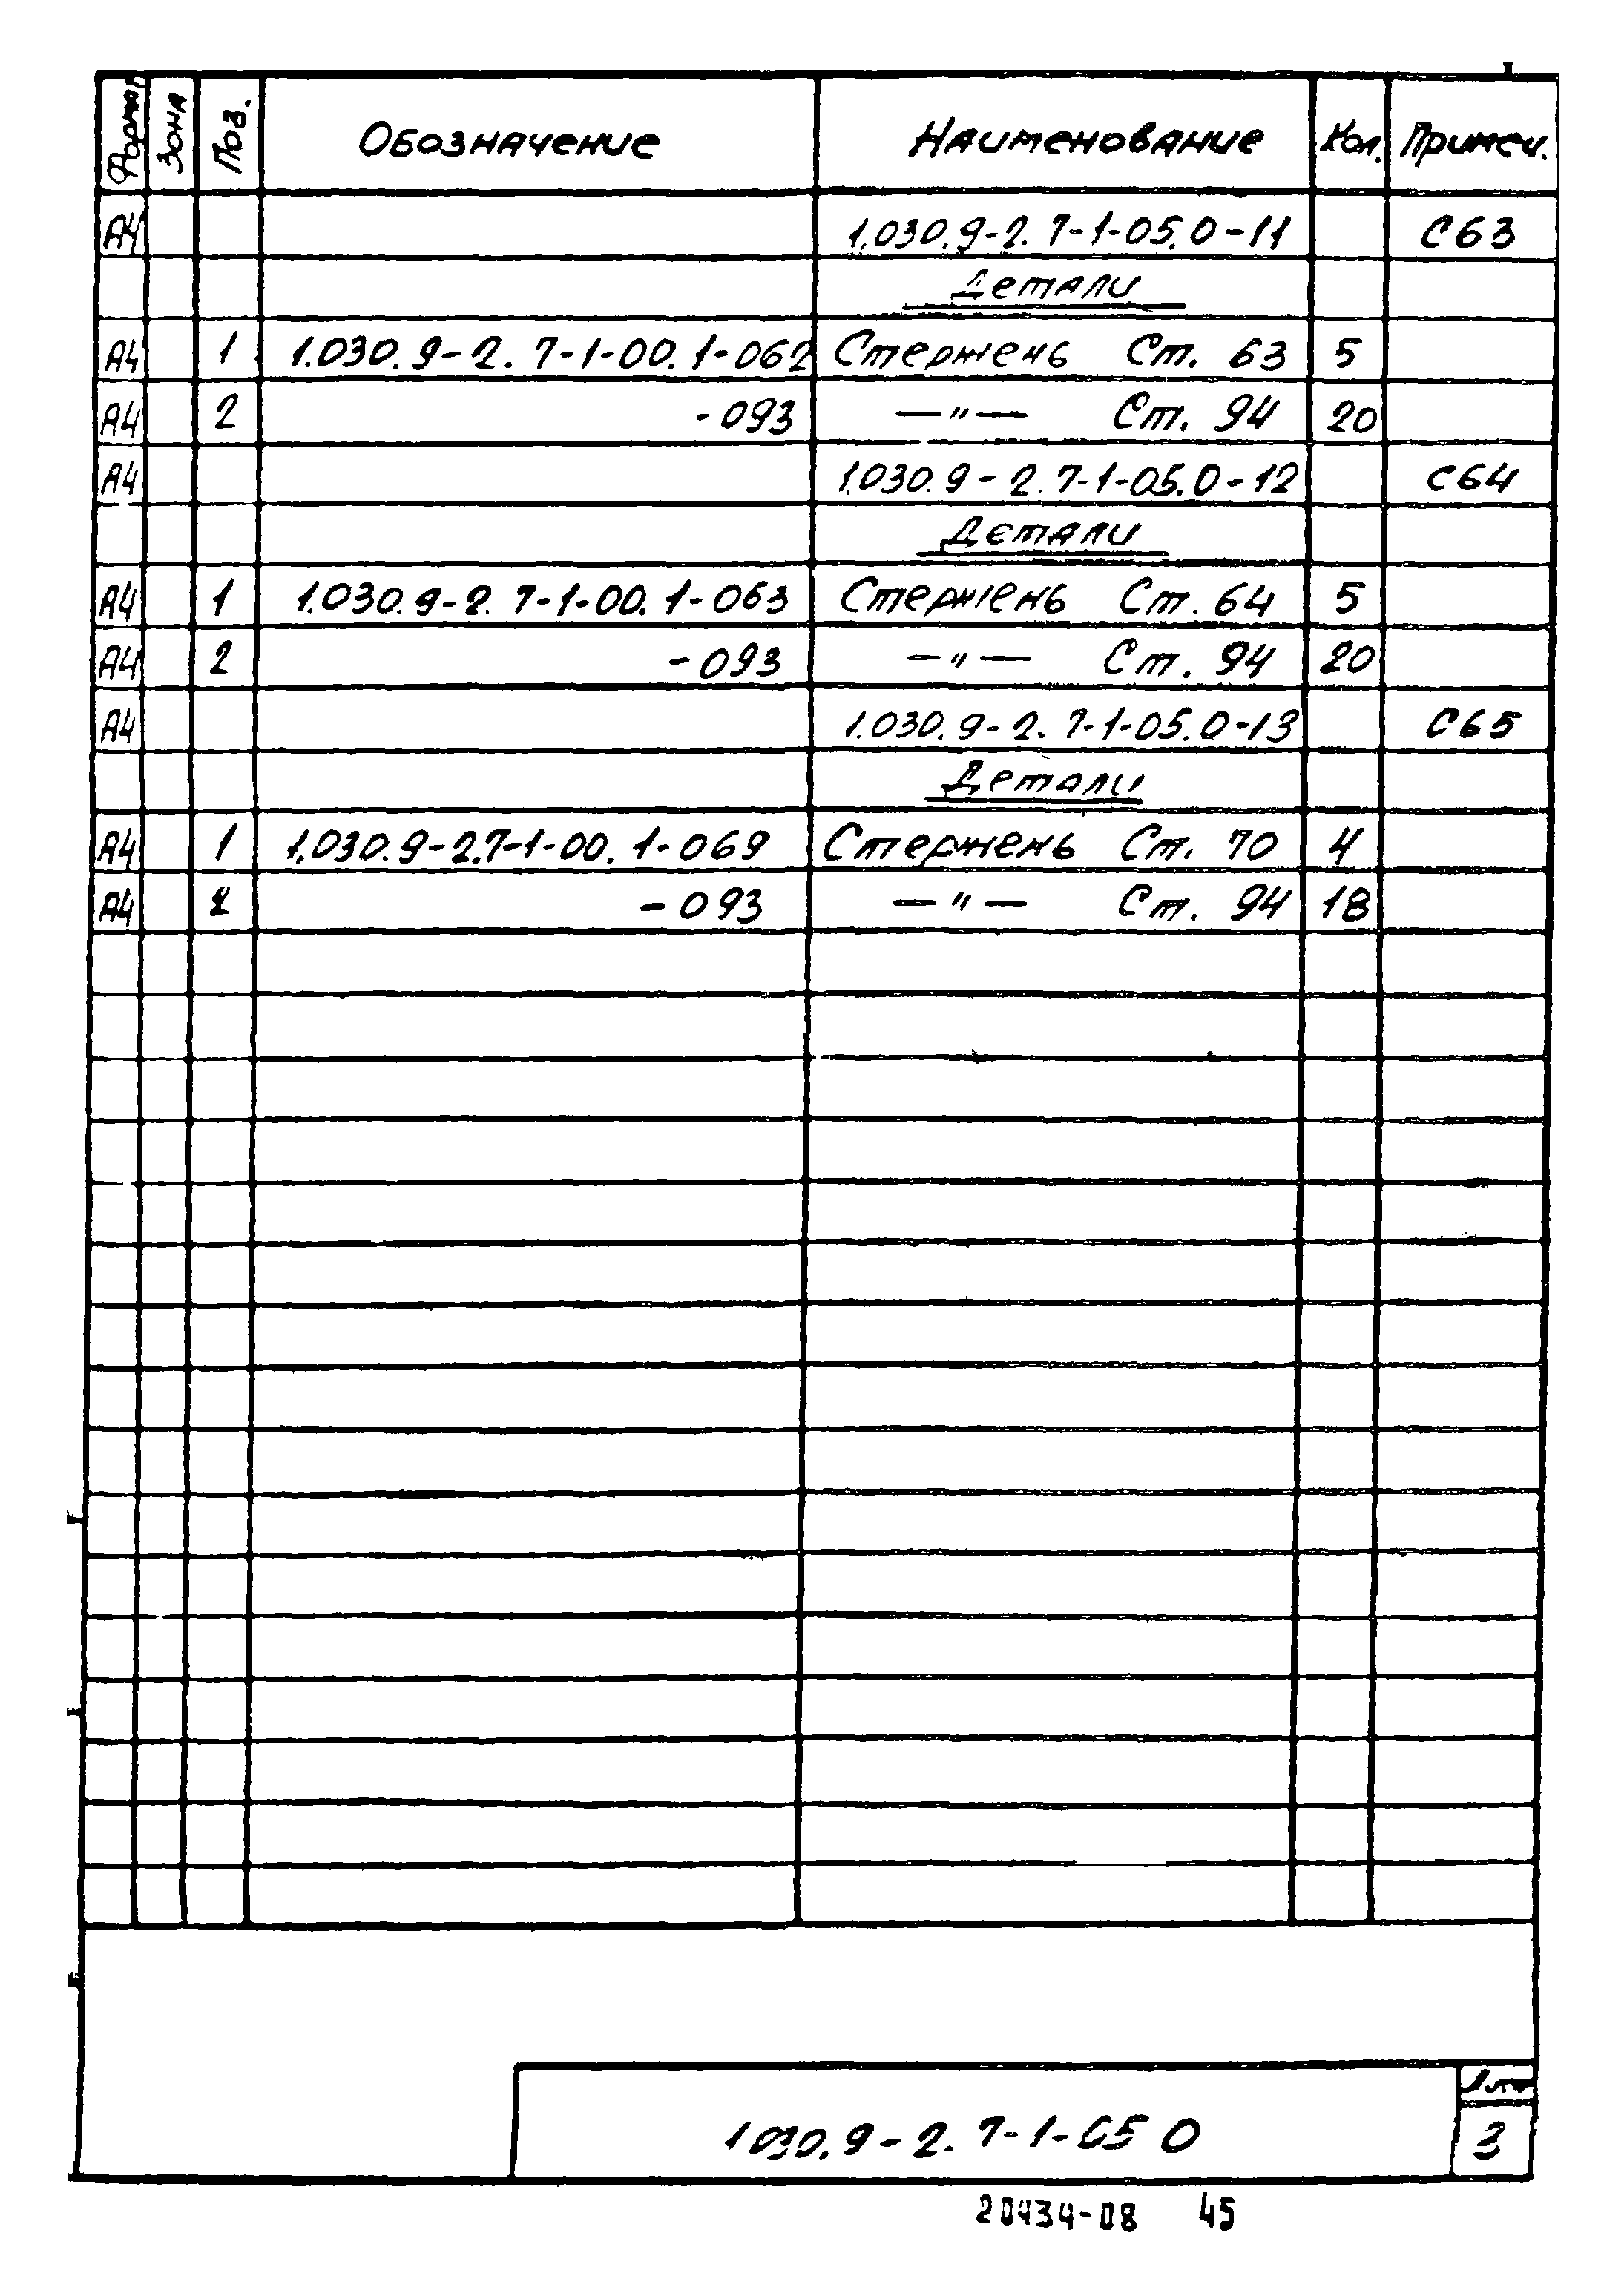 Формат Зона Поз. Обозначение Наименование Кол. Примеч.
А4 1.030.9-2.7-1-05.0-11 С63
Детали
А4 1 1.030.9-2.7-1-00.1-062 Стержень Ст. 63 5
А4 2 -093 —"— Ст. 94 20
А4 1.030.9-2.7-1-05.0-12 С64
Детали
А4 1 1.030.9-2.7-1-00.1-063 Стержень Ст. 64 5
А4 2 -093 —"— Ст. 94 20
А4 1.030.9-2.7-1-05.0-13 С65
Детали
А4 1 1.030.9-2.7-1-00.1-069 Стержень Ст. 70 4
А4 2 -093 —"— Ст. 94 18
Лист
1 030.9-2.7-1-05 0 3
20434-08 45